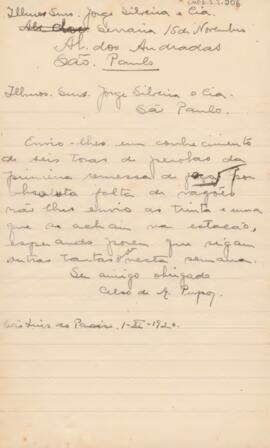 Illmos. Snrs. Jorge Silveira e Cia.
Serraria 15 de Novembro
Al. dos Andradas
São Paulo
Illmos. Snrs. Jorge Silveira e Cia.
São Paulo.
Envio-lhes um conhecimento
de seis toras de perobas da
primeira remessa de por
absoluta falta de vagões
não lhes envio as trinta e uma
que se acham na estação,
esperando porem que sigam
outras tantas nesta semana.
Seu amigo obrigado
Celso de M. Pupo,
São Luis do 1-